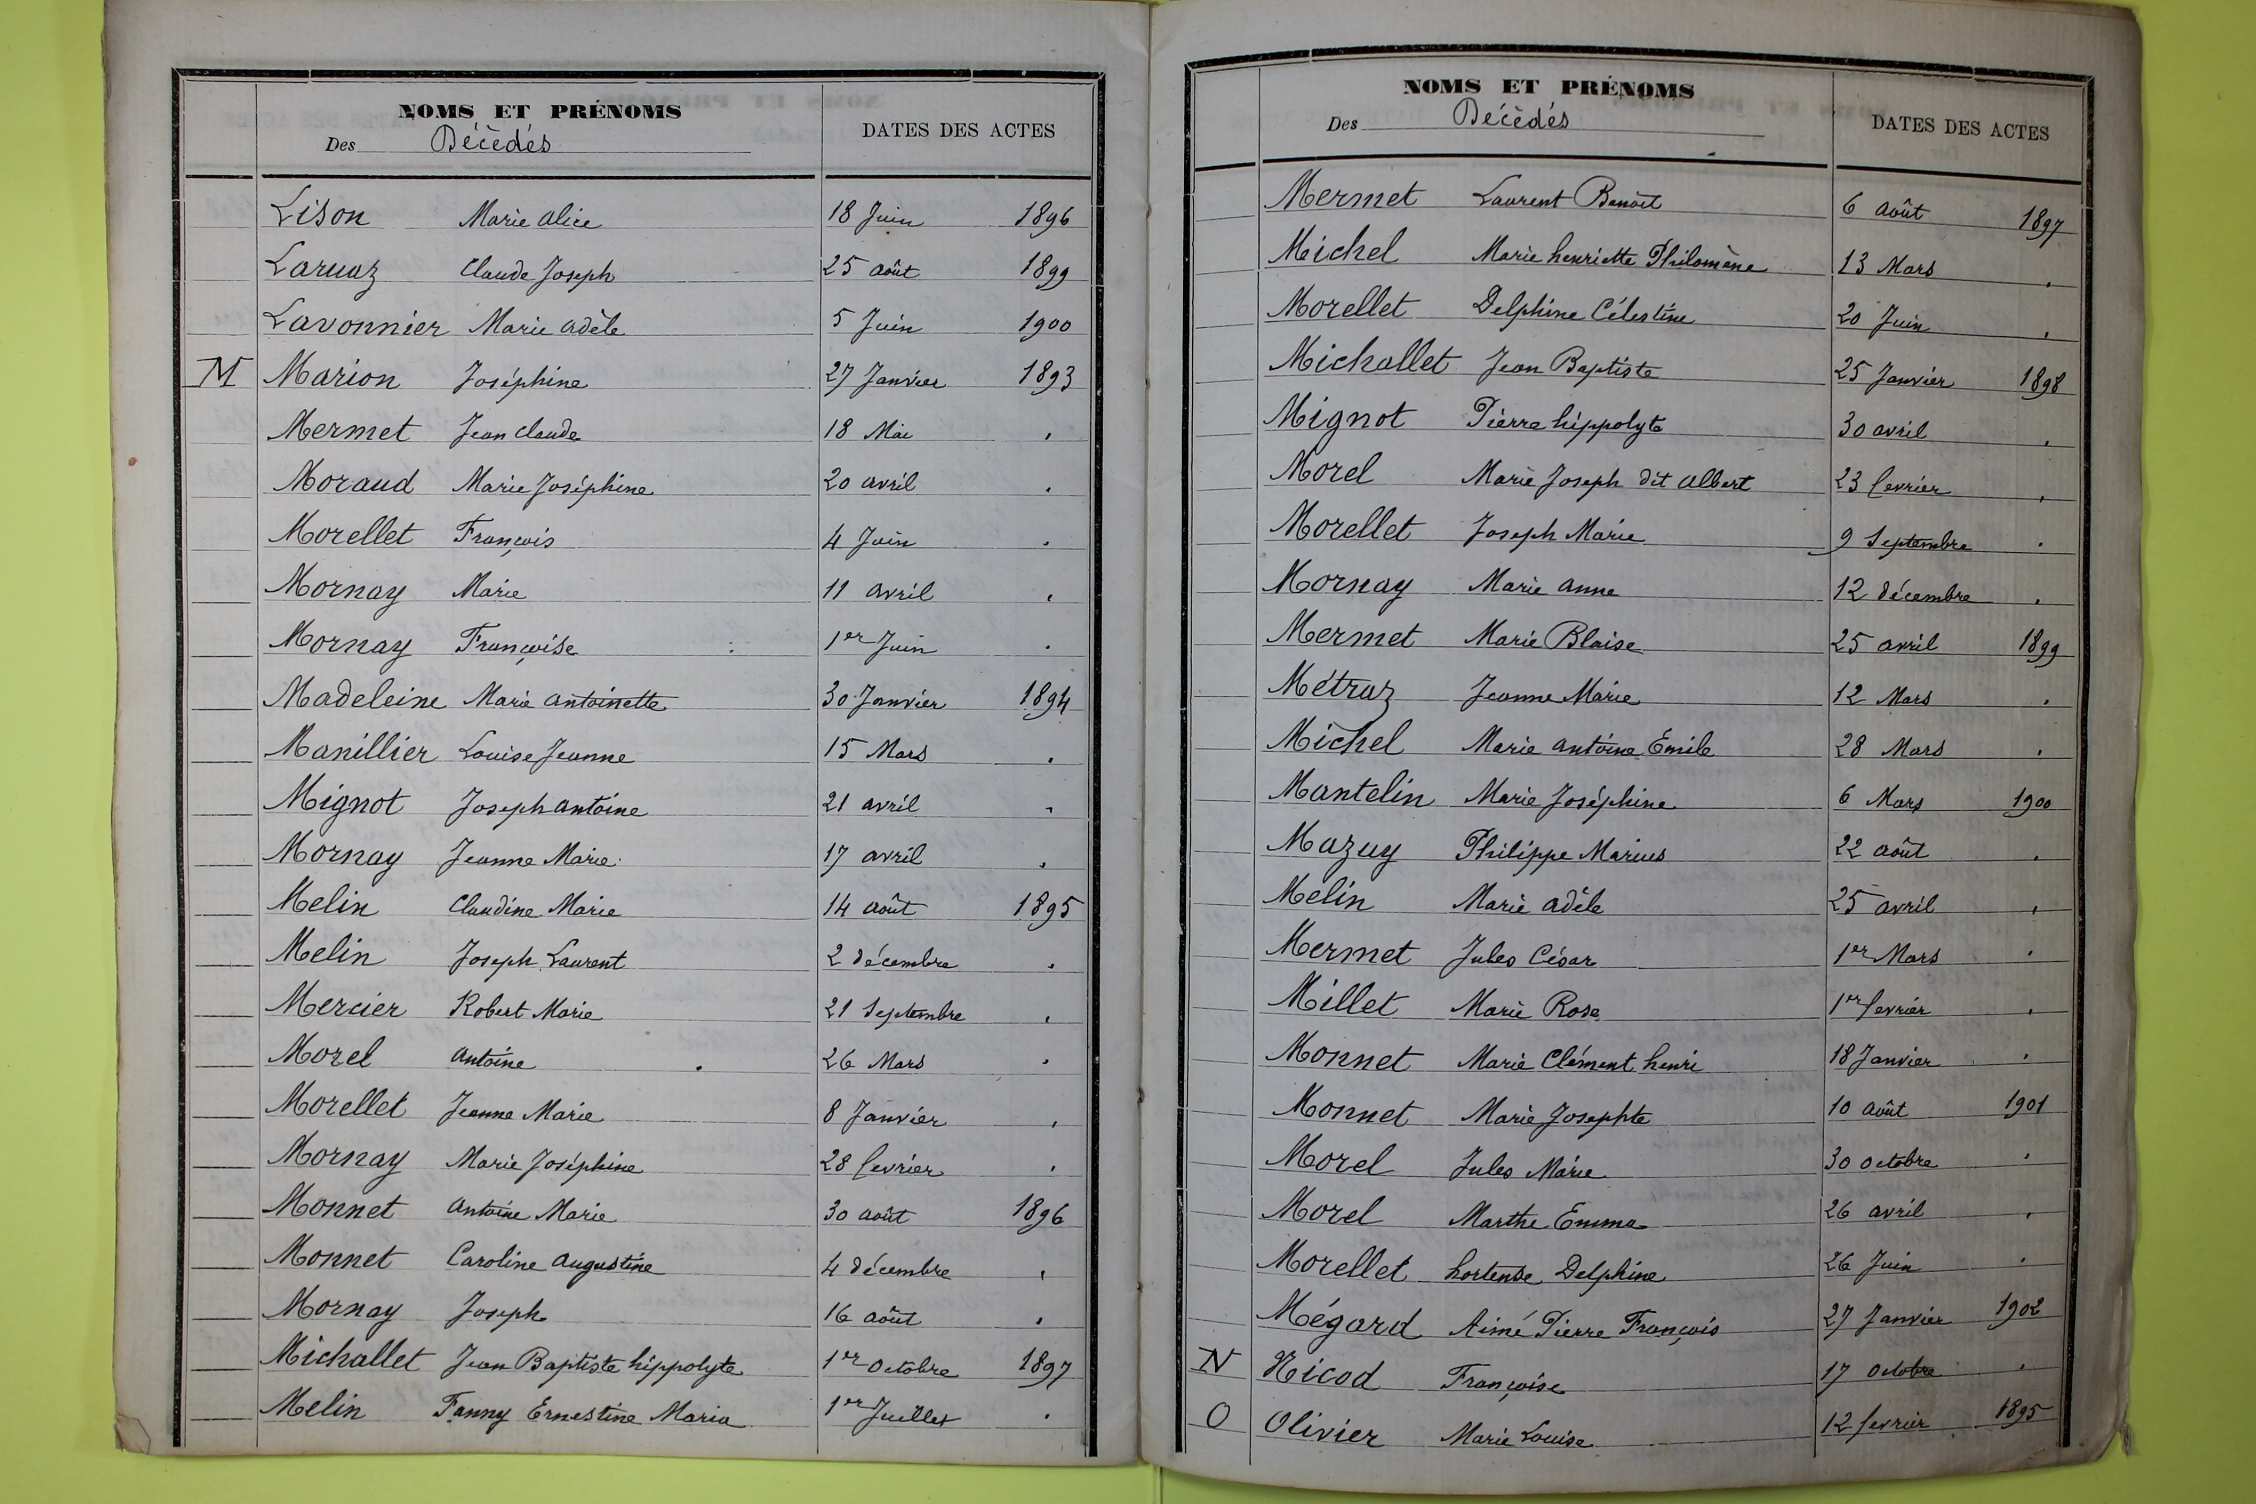 NOMS ET PRÉNOMS
Des Décèdés
DATES DES ACTES
Lison Marie alice 18 Juin 1896
Laruaz Claude Joseph 25 août 1899
Lavonnier Marie adèle 5 Juin 1900
M Marion Joséphine 27 Janvier 1893
Mermet Jean claude 18 Mai "
Moraud Marie Joséphine 20 avril "
Morellet François 4 Juin "
Mornay Marie 11 avril "
Mornay Françoise 1er Juin "
Madeleine Marie antoinette 30 Janvier 1894
Manillier Louise Jeanne 15 Mars "
Mignot Joseph antoine 21 avril "
Mornay Jeanne Marie 17 avril "
Melin Claudine Marie 14 août 1895
Melin Joseph Laurent 2 décembre "
Mercier Robert Marie 21 Septembre "
Morel antoine 26 Mars "
Morellet Jeanne Marie 8 Janvier "
Mornay Marie Joséphine 28 fevrier "
Monnet antoine Marie 30 août 1896
Monnet Caroline augustine 4 décembre "
Mornay Joseph 16 août "
Michallet Jean Baptiste hippolyte 1er octobre 1897
Melin Fanny Ernestine Maria 1er Juillet "
NOMS ET PRÉNOMS
Des Décèdés
DATES DES ACTES
Mermet Laurent Benoit 6 août 1897
Michel Marie henriette Philomène 13 Mars "
Morellet Delphine Célestine 20 Juin "
Michallet Jean Baptiste 25 Janvier 1898
Mignot Pierre hippolyte 30 avril "
Morel Marie Joseph dit albert 23 fevrier "
Morellet Joseph Marie 9 Septembre "
Mornay Marie anne 12 décembre "
Mermet Marie Blaise 25 avril 1899
Métraz Jeanne Marie 12 Mars "
Michel Marie antoine Émile 28 Mars "
Mantelin Marie Joséphine 6 Mars 1900
Mazuy Philippe Marius 22 août "
Melin Marie adèle 25 avril "
Mermet Jules César 1er Mars "
Millet Marie Rose 1er fevrier "
Monnet Marie Clément henri 18 Janvier "
Monnet Marie Josephte 10 août 1901
Morel Jules Marie 30 octobre "
Morel Marthe Emma 26 avril "
Morellet hortense Delphine 26 Juin "
Mégard Aimé Pierre François 27 Janvier 1902
N Nicod Françoise 17 octobre "
O Olivier Marie Louise 12 fevrier 1895